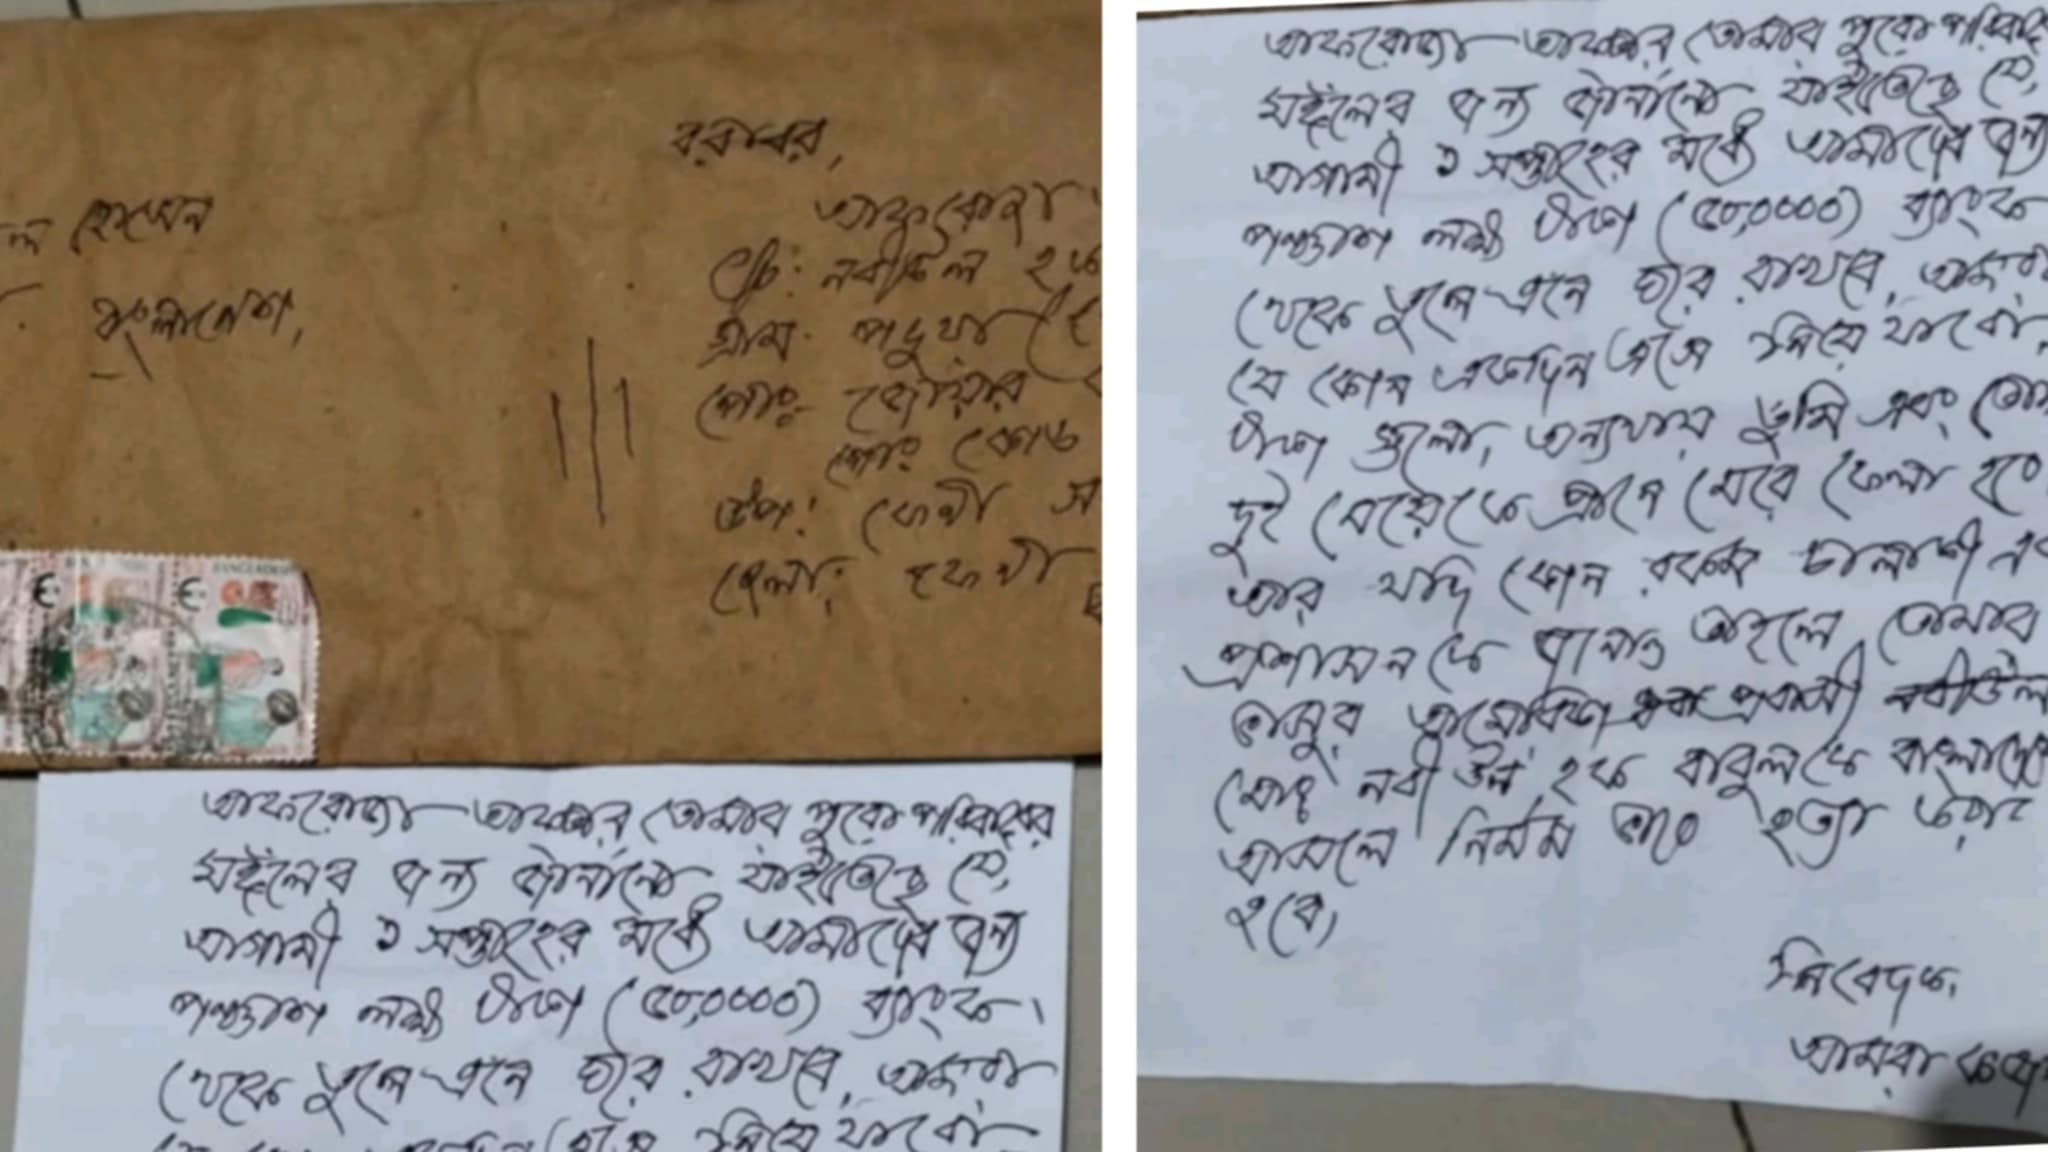 বরাবর,
ল হোসেন
বাংলাদেশ,
আফরোজা
C/O: নবীউল হক
গ্রাম: পদুয়া
পোঃ
পোঃ কোড
উপ: ফেনী স
জেলা: ফেনী
BANGLADESH
আফরোজা আক্তার তোমার পুরো পরিবারের
মঙ্গলের জন্য জানানো যাইতেছে যে,
আগামী ১ সপ্তাহের মধ্যে আমাদের জন্য
পঞ্চাশ লক্ষ টাকা (৫০,০০০০) ব্যাংক
থেকে তুলে এনে ঘরে রাখবে, আমরা
নিয়ে যাবো
আফরোজা আক্তার তোমার পুরো পরিবারে
মঙ্গলের জন্য জানানো যাইতেছে যে,
আগামী ১ সপ্তাহের মধ্যে আমাদের জন্য
পঞ্চাশ লক্ষ টাকা (৫০,০০০০) ব্যাংক
থেকে তুলে এনে ঘরে রাখবে, আমরা
যে কোন একদিন এসে নিয়ে যাবো,
টাকা গুলো, অন্যথায় তুমি এবং তোমা
দুই মেয়েকে প্রানে মেরে ফেলা হবে
আর যদি কোন রকম চালাকী
প্রশাসন কে জানাও তাহলে তোমার
ভাসুর আমেরিকা প্রবাসী নবীউল
মোঃ নবী উল হক বাবুলকে বাংলাদেশে
আসলে নির্মম ভাবে হত্যা করা
হবে,
নিবেদক,
আমরা